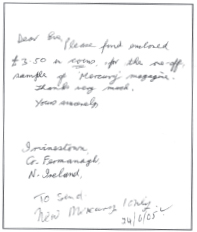 Dear Eve,
Please find enclosed
£3.50 in coins for the one-off
sample of 'Mercury' magazine.
Thanks very much.
Yours sincerely,
Irvinestown
Co. Fermanagh.
N. Ireland.
To Send
New Mercury 1 only
24/6/05